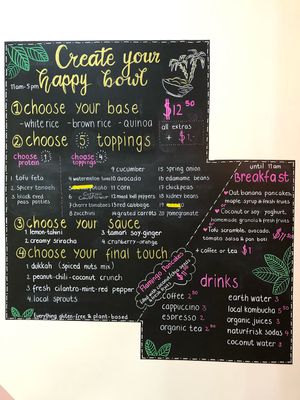 Create your
happy bowl
11am-5pm
① choose your base
-white rice -brown rice -quinoa
$12.50
all extras
+ $1.-
② choose 5 toppings
choose 1 protein
choose 4 toppings
1 tofu feta
2 spicy tempeh
3 black eyed peas patties
4 watermelon tuna
5 potato
6
7 cherry tomatoes
8 beetroot
9 zucchini
9 cucumber
10 avocado
11 corn
12 sweet bell peppers
13 red cabbage
14 grated carrots
15 spring onion
16 edamame beans
17 chickpeas
18 kidney beans
20 pomegranate
③ choose your sauce
1 lemon-tahini
2 creamy sriracha
3 tamari soy-ginger
4 cranberry-orange
④ choose your final touch
1 dukkah (spiced nuts mix)
2 peanut-chili-coconut crunch
3 fresh cilantro-mint-red pepper
4 local sprouts
Everything gluten-free & plant-based
until 11am
Breakfast
Oat banana pancakes,
maple syrup & fresh fruits
or
Coconut or soy yoghurt,
homemade granola & fresh fruits
or
Tofu scramble, avocado,
tomato salsa & pan bati
+ coffee or tea $1
Flamingo Pancakes
drinks
coffee 2
cappuccino 3
espresso 2
organic tea
earth water 3
local kombucha 5
organic juices
naturfrisk sodas 4
coconut water 3